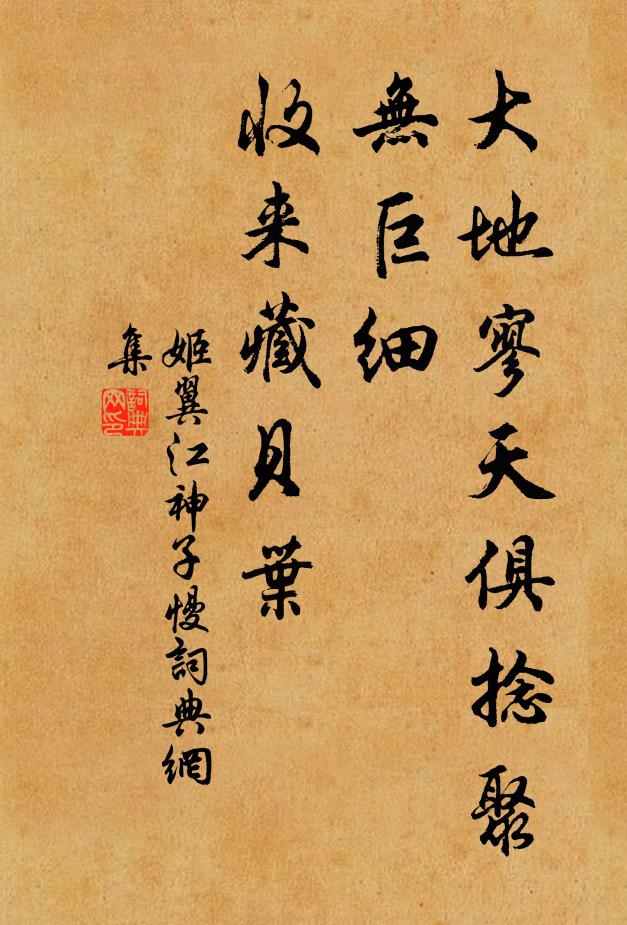 大地寥天俱捻聚
無巨細
收来藏貝葉
姬翼江神子慢詞典網
集
詞典
网印